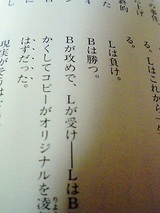 る。Lはこれか
る。
Lは負け。
Bは勝つ。
Bが攻めで、Lが受け――LはB
かくしてコピーがオリジナルを凌
はずだった。
現実がそうは